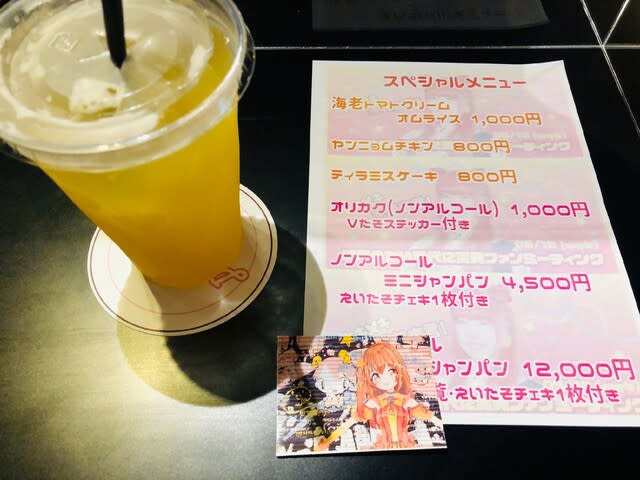 スペシャルメニュー
海老トマトクリーム
オムライス 1,000円
ヤンニョムチキン 800円
ティラミスケーキ 800円
オリカク(ノンアルコール) 1,000円
Vたそステッカー付き
ノンアルコール
ミニシャンパン 4,500円
えいたそチェキ1枚付き
ル
シャンパン 12,000円
・えいたそチェキ1枚付き